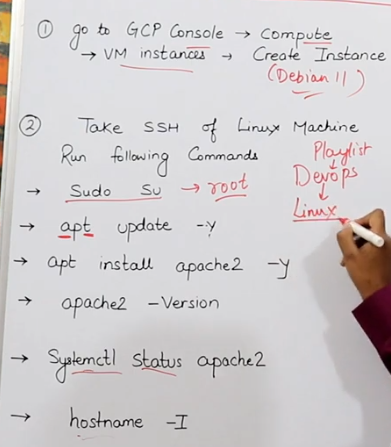 ① go to GCP Console → Compute
→ VM instances → Create Instance
(Debian 11)
② Take SSH of Linux Machine
Run following Commands
Playlist
↓
Devops
↓
Linux
→ Sudo Su → root
→ apt update -y
→ apt install apache2 -y
→ apache2 -Version
→ Systemctl Status apache2
→ hostname -I